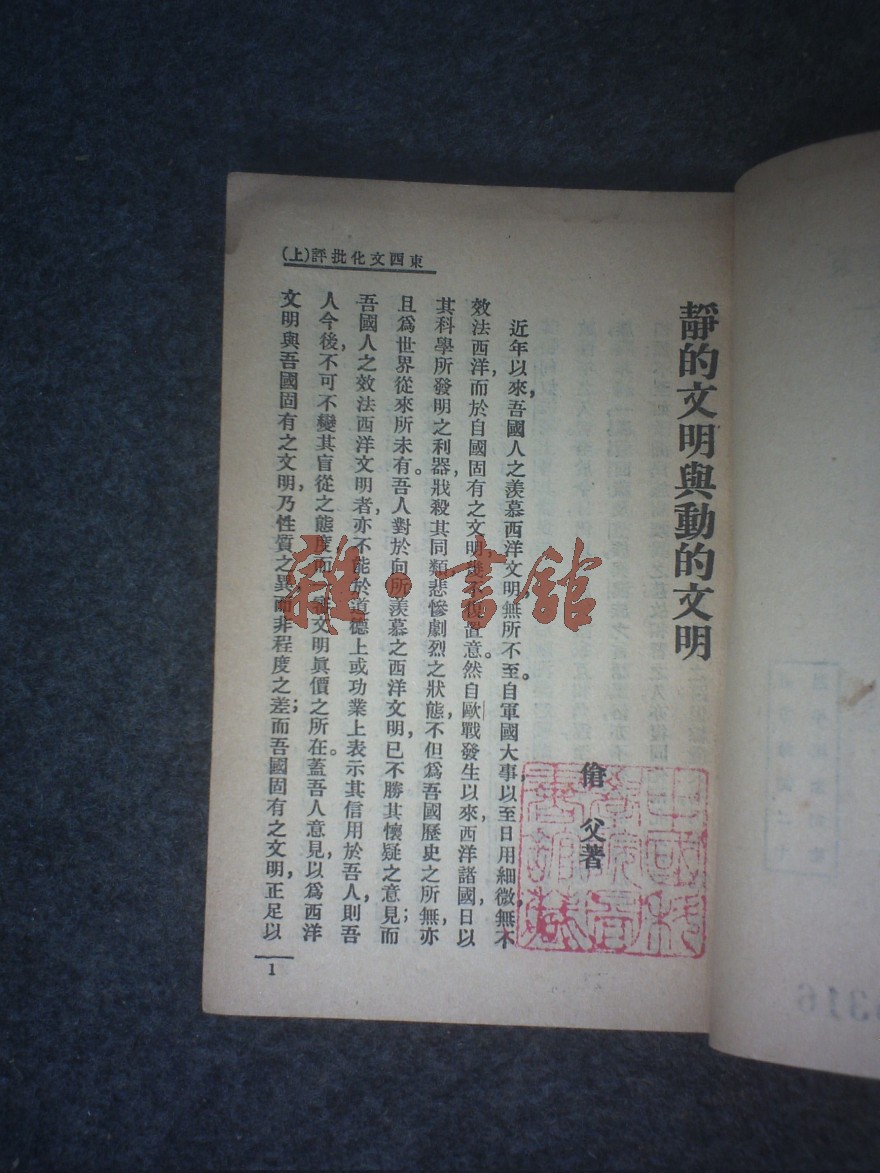 東西文化批評(上)
靜的文明與動的文明
傖父著
近年以來,吾國人之羨慕西洋文明無所不至。自軍國大事以至日用細微,無不
效法西洋,而於自國固有之文明,幾不復置意。然自歐戰發生以來,西洋諸國,日以
其科學所發明之利器,戕殺其同類,悲慘劇烈之狀態,不但爲吾國歷史之所無,亦
且爲世界從來所未有。吾人對於向所羨慕之西洋文明,已不勝其懷疑之意見;而
吾國人之效法西洋文明者,亦不能於道德上或功業上表示其信用於吾人,則吾
人今後,不可不變其盲從之態度,而一審文明眞價之所在。蓋吾人意見,以爲西洋
文明與吾國固有之文明,乃性質之異,而非程度之差;而吾國固有之文明,正足以
1
雜·書館
316